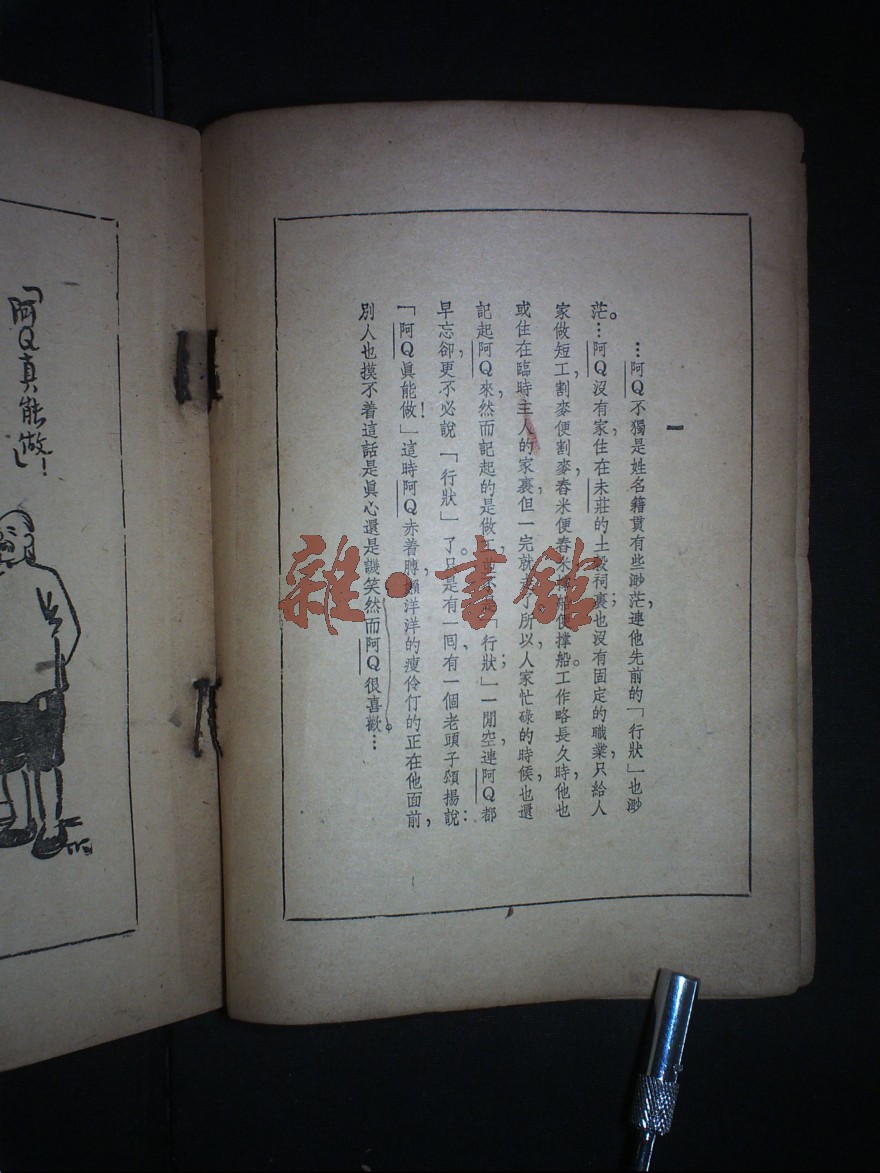 一
…阿Q不獨是姓名籍貫有些渺茫，連他先前的「行狀」也渺
茫。…阿Q沒有家，住在未莊的土穀祠裏；也沒有固定的職業，只給人
家做短工，割麥便割麥，舂米便舂米，撐船便撐船。工作略長久時，他也
或住在臨時主人的家裏，但一完就走了。所以，人家忙碌的時候，也還
記起阿Q來，然而記起的是做工，並不是「行狀」；一閒空，連阿Q都
早忘卻，更不必說「行狀」了。只是有一囘，有一個老頭子頌揚說：
「阿Q眞能做！」這時阿Q赤着膊，懶洋洋的瘦伶仃的正在他面前，
別人也摸不着這話是眞心還是譏笑，然而阿Q很喜歡。…
「阿Q真能做！」
雜·書館